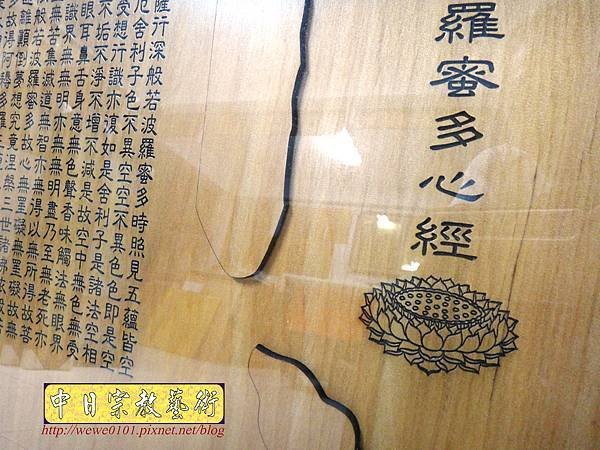 羅蜜多心經
薩行深般若波羅蜜多時照見五蘊皆空
厄舍利子色不異空空不異色色即是空
受想行識亦復如是舍利子是諸法空相
不垢不淨不增不減是故空中無色無受
眼耳鼻舌身意無色聲香味觸法無眼界
識界無無明亦無無明盡乃至無老死亦
無苦集滅道無智亦無得以無所得故菩
般若波羅蜜多故心無罣礙無罣礙故無
離顛倒夢想究竟涅槃三世諸佛依般若
故得阿耨多羅三
中日宗教藝術
http://wewe0101.pixnet.net/blog